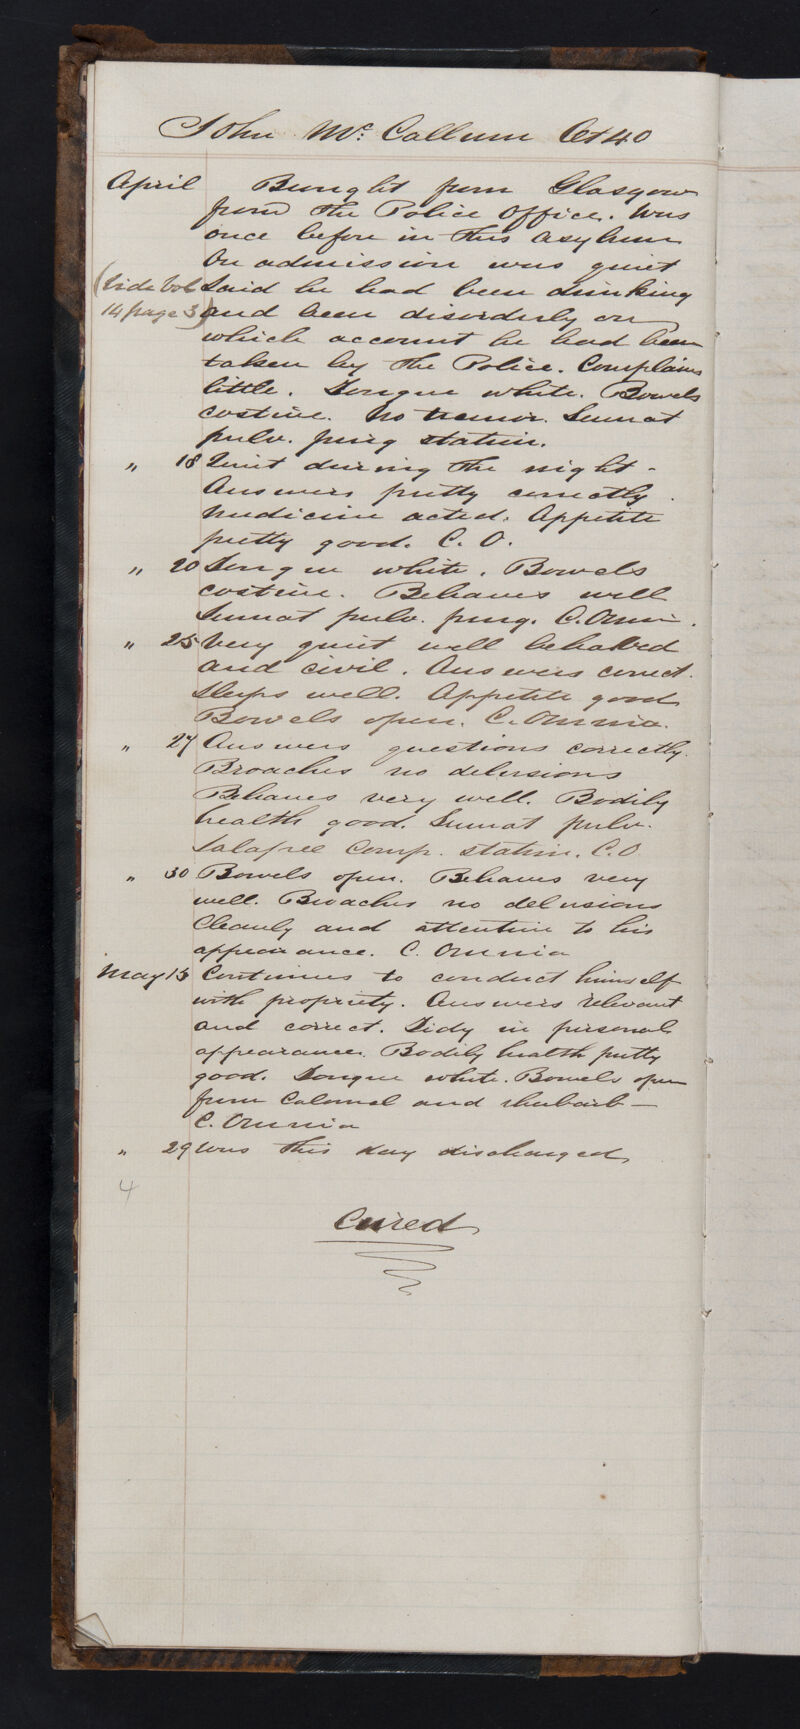 John Mc. Callum Aet 40
April Brought from Glasgow
from the Police Office. Was
once before in this asylum
On admission was quiet
(Vide Vol Said he had been drinking
14 page 3) and been disorderly on
which account he had been
taken by the Police. Complains
little. Tongue white. Bowels
costive. No tremor. Sumat
pulv. purg statim.
" 18 Quiet during the night -
Answers pretty correctly.
Medicine acted. Appetite
pretty good. C. O.
" 20 Tongue white. Bowels
costive. Behaves well
Sumat pulv. purg. C. Omnia.
" 25 Very quiet well behaved
and civil. Answers correct.
Sleeps well. Appetite good
Bowels open. C. Omnia.
" 27 Answers questions correctly.
Broaches no delusions
Behaves very well. Bodily
health good. Sumat pulv.
Jalapae Comp. statim. C. O
" 30 Bowels open. Behaves very
well. Broaches no delusions
Cleanly and attentive to his
appearance. C. Omnia
May 15 Continues to conduct himself
with propriety. Answers relevant
and correct. Tidy in personal
appearance. Bodily health pretty
good. Tongue white. Bowels open
from Calomel and rhubarb -
C. Omnia
" 29 Was this day discharged
4
Cured